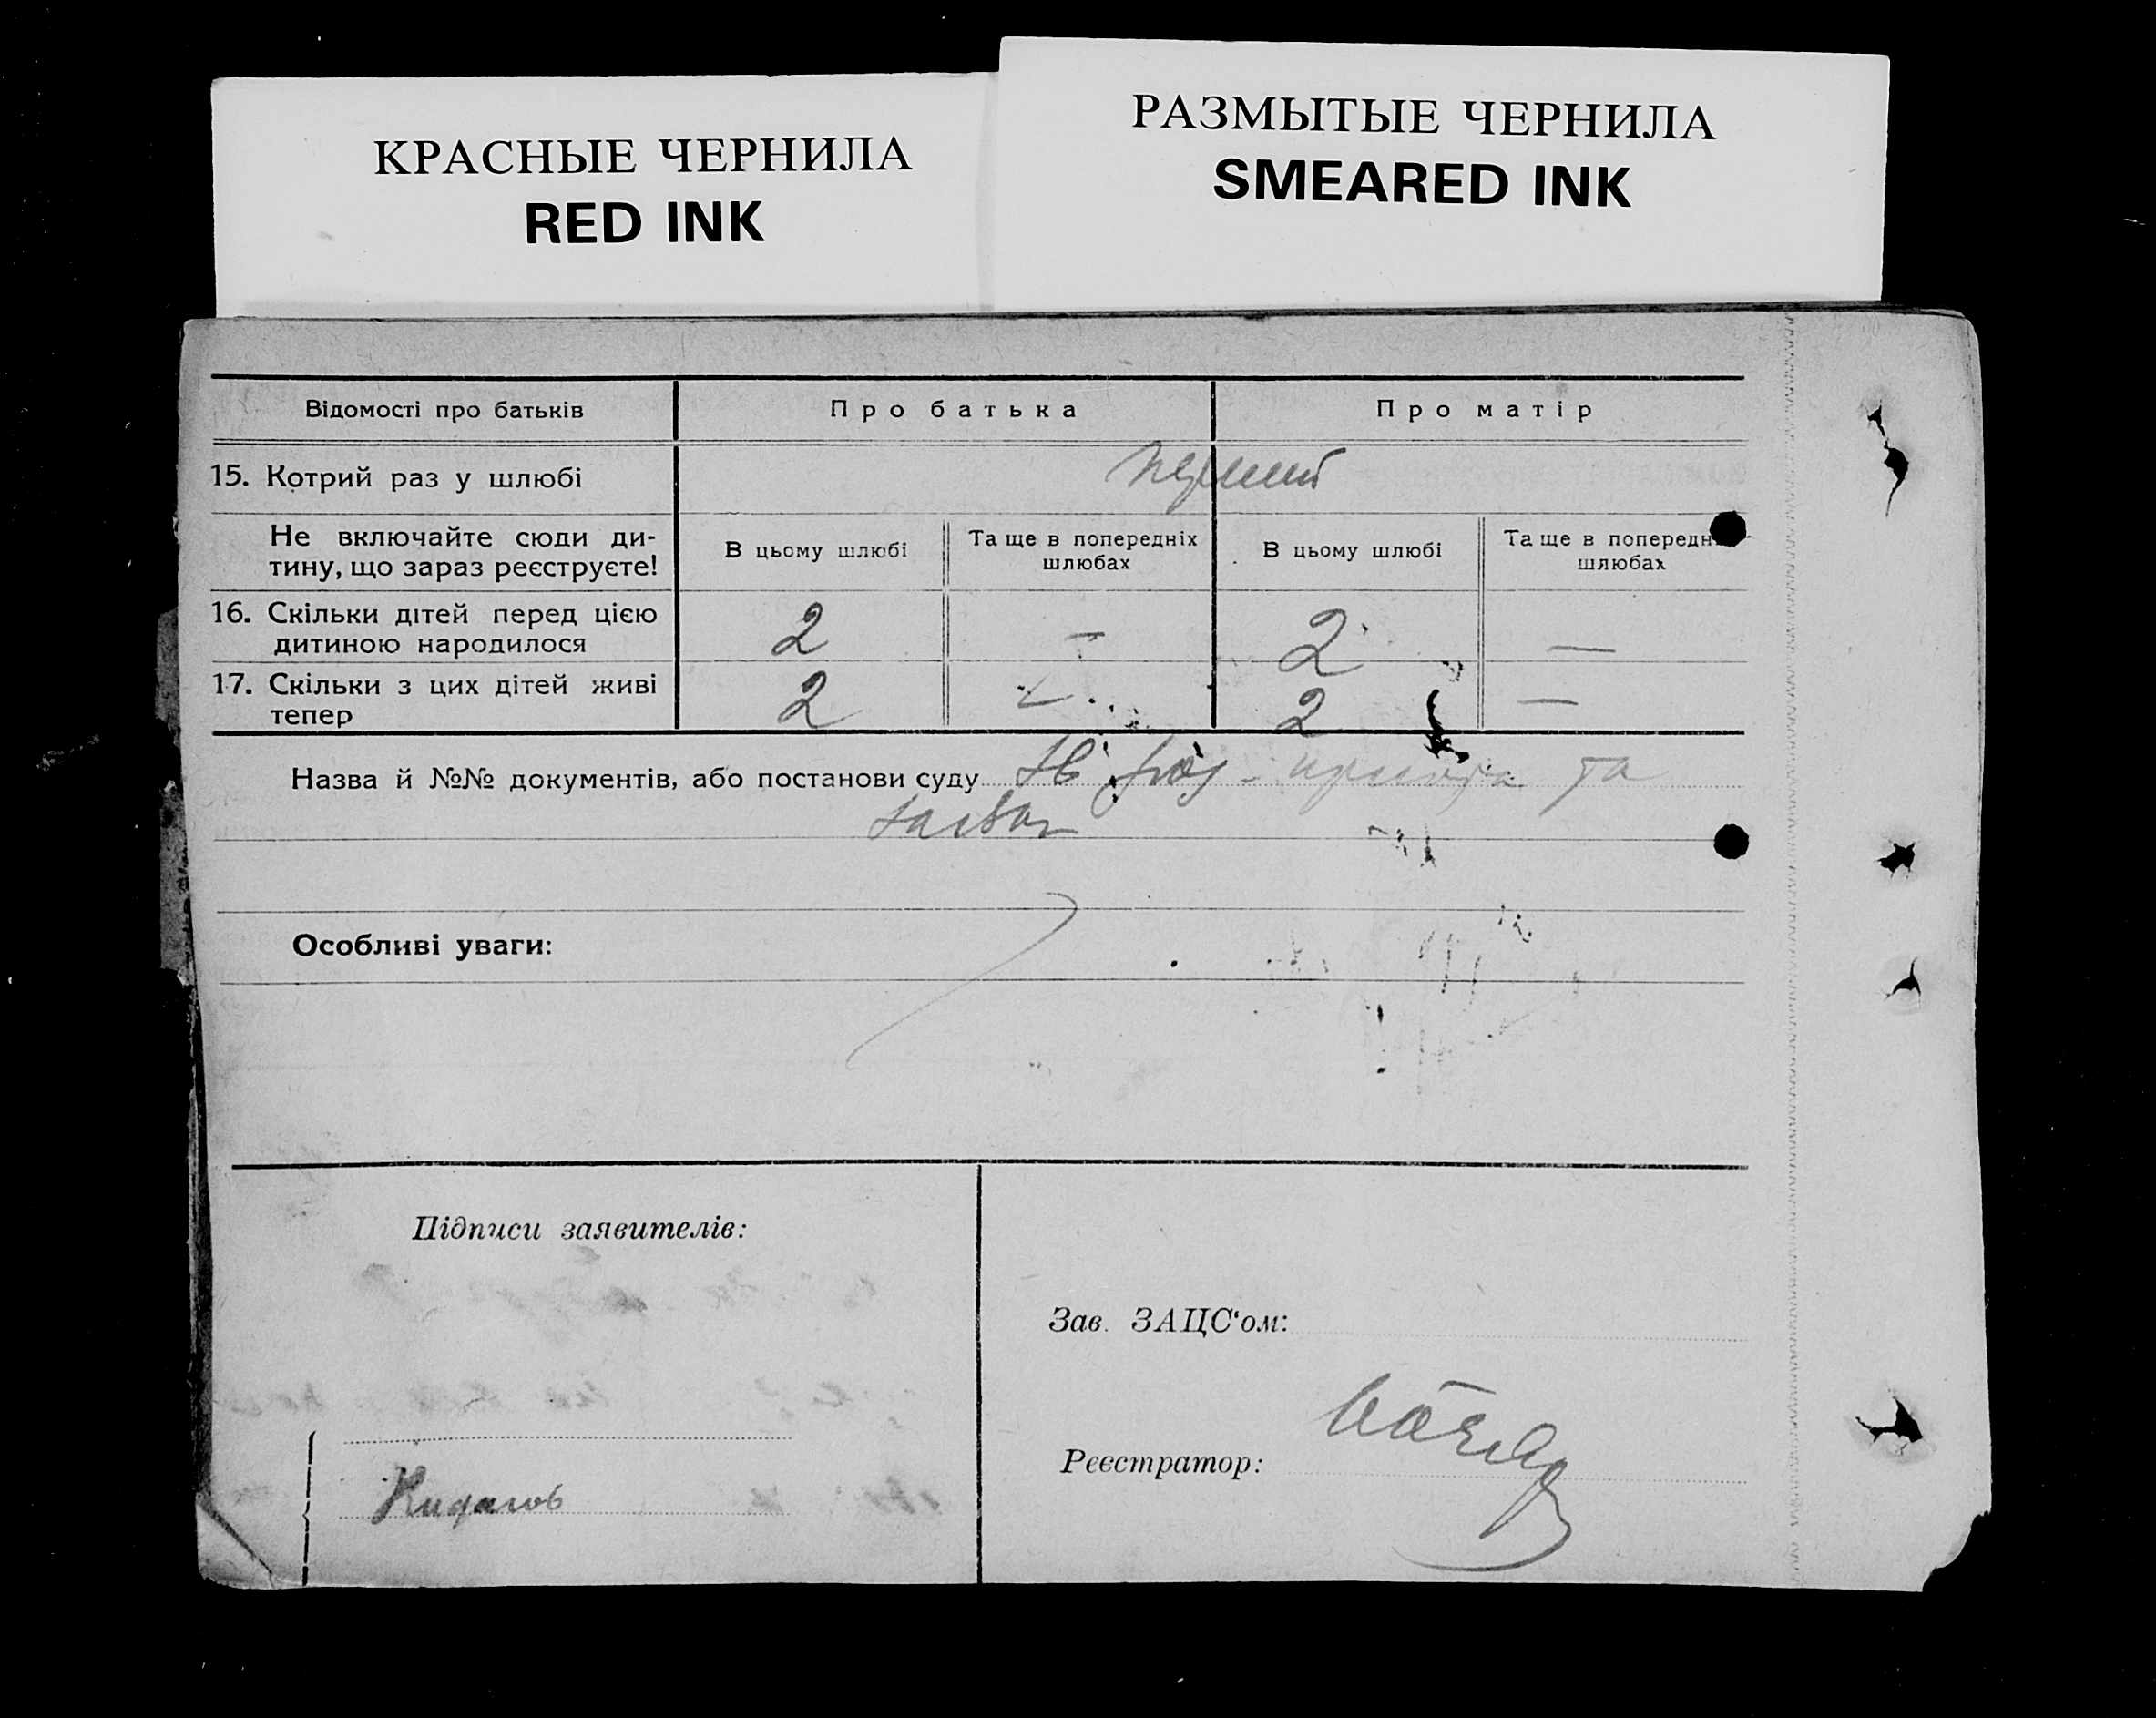 КРАСНЫЕ ЧЕРНИЛА
RED INK
РАЗМЫТЫЕ ЧЕРНИЛА
SMEARED INK
Відомості про батьків Про батька Про матір
15. Котрий раз у шлюбі перший
Не включайте сюди ди-
тину, що зараз реєструєте!
В цьому шлюбі
Та ще в попередніх
шлюбах
В цьому шлюбі
Та ще в
шлюбах
16. Скільки дітей перед цією
дитиною народилося
2 — 2 —
17. Скільки з цих дітей живі
тепер
2 — 2 —
Назва й №№ документів, або постанови суду та
Особливі уваги:
Підписи заявителів:
Зав. ЗАЦС‘ом:
Реєстратор: